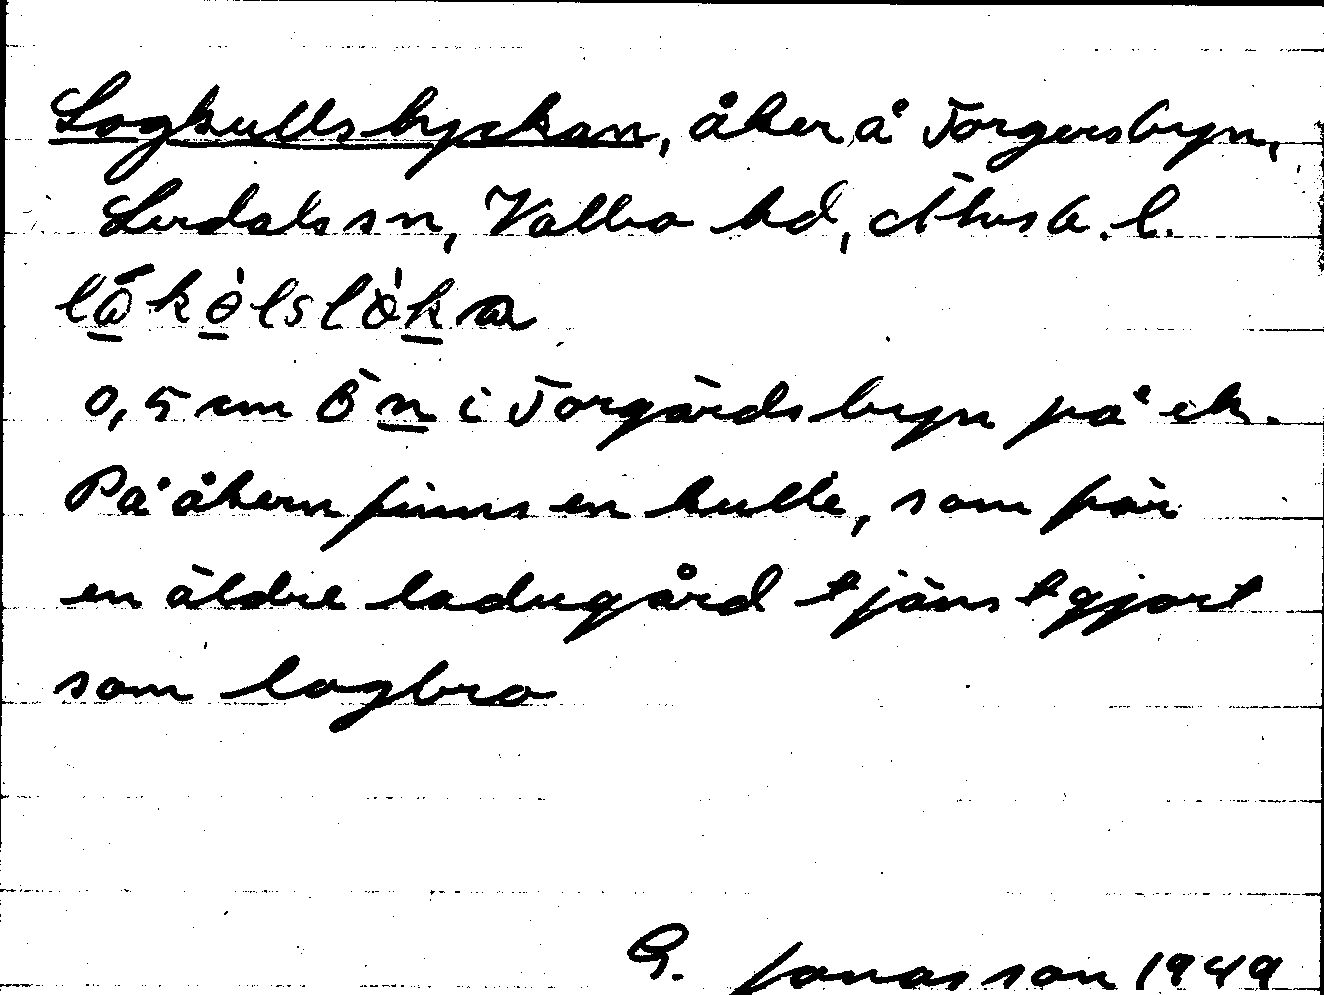 Logkullslyckan, åker å Torgersbyn,
Lerdals sn, Valbo hd, Älvsb. l.
lå̄kòlslòka
0,5 cm Ö n i Torgärdsbyn på ek.
På åkern finns en kulle, som för
en äldre ladugård tjänstgjort
som logbro
G. Jonasson 1949